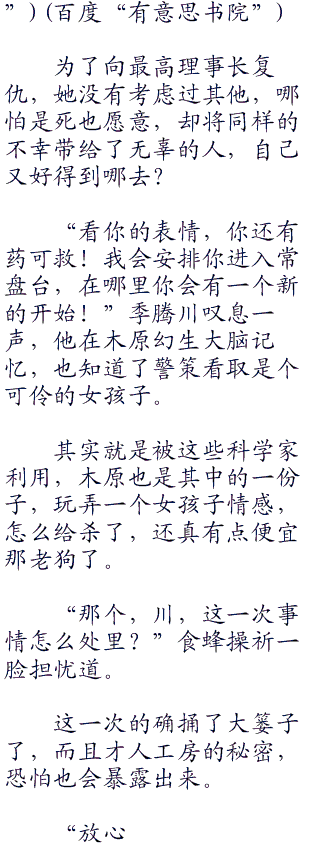 ”)(百度“有意思书院”)
为了向最高理事长复
仇，她没有考虑过其他，哪
怕是死也愿意，却将同样的
不幸带给了无辜的人，自己
又好得到哪去？
“看你的表情，你还有
药可救！我会安排你进入常
盘台，在哪里你会有一个新
的开始！”季腾川叹息一
声，他在木原幻生大脑记
忆，也知道了警策看取是个
可伶的女孩子。
其实就是被这些科学家
利用，木原也是其中的一份
子，玩弄一个女孩子情感，
怎么给杀了，还真有点便宜
那老狗了。
“那个，川，这一次事
情怎么处里？”食蜂操祈一
脸担忧道。
这一次的确捅了大篓子
了，而且才人工房的秘密，
恐怕也会暴露出来。
“放心